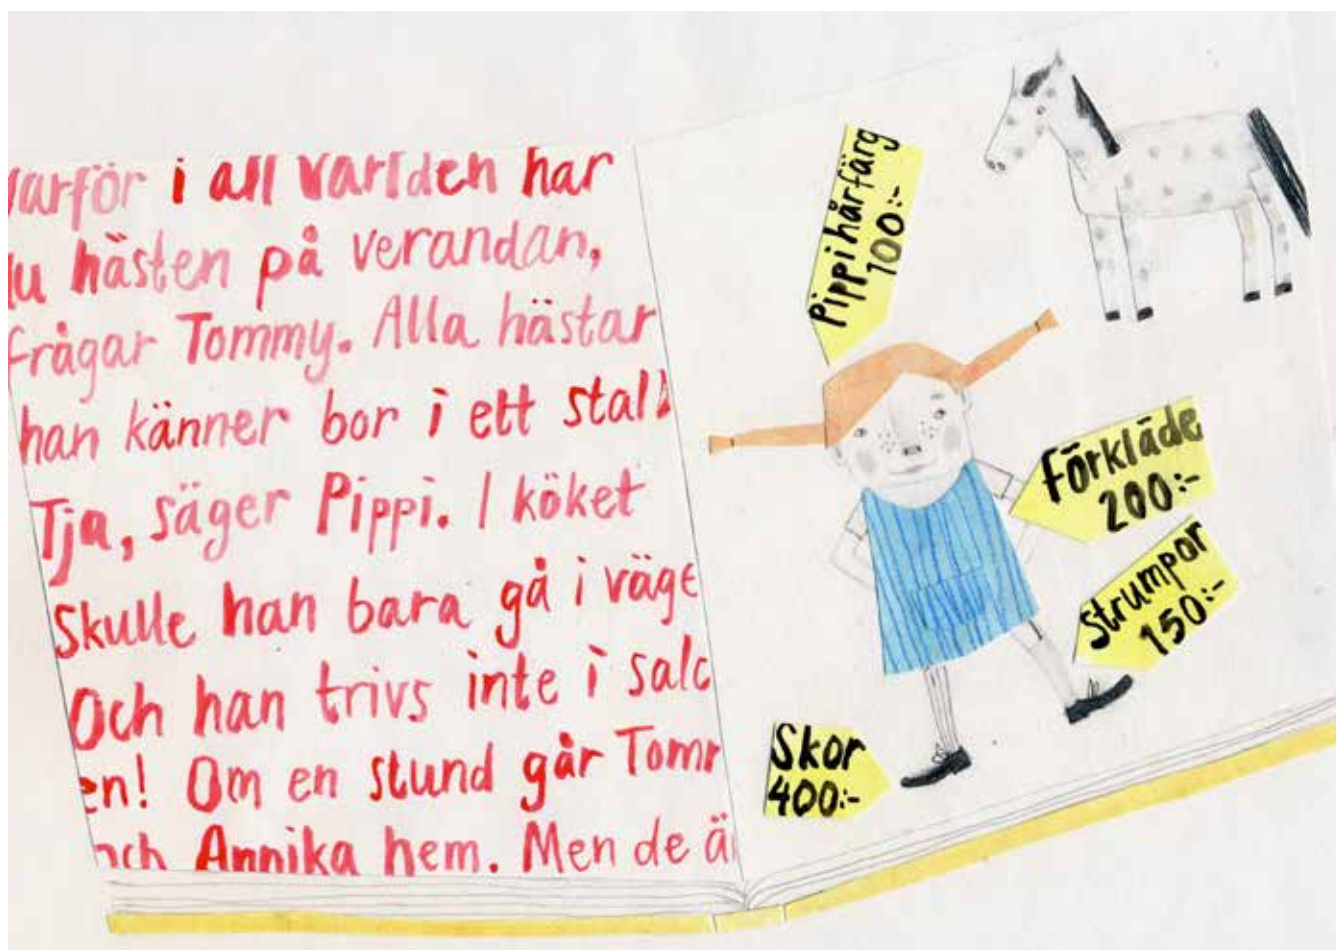 varför i all världen har
du hästen på verandan,
frågar Tommy. Alla hästar
han känner bor i ett stall
Tja, säger Pippi. I köket
Skulle han bara gå i väge
Och han trivs inte i salo
en! Om en stund går Tomm
och Annika hem. Men de ä
Pippi hårfärg
100:-
Förkläde
200:-
Strumpor
150:-
Skor
400:-